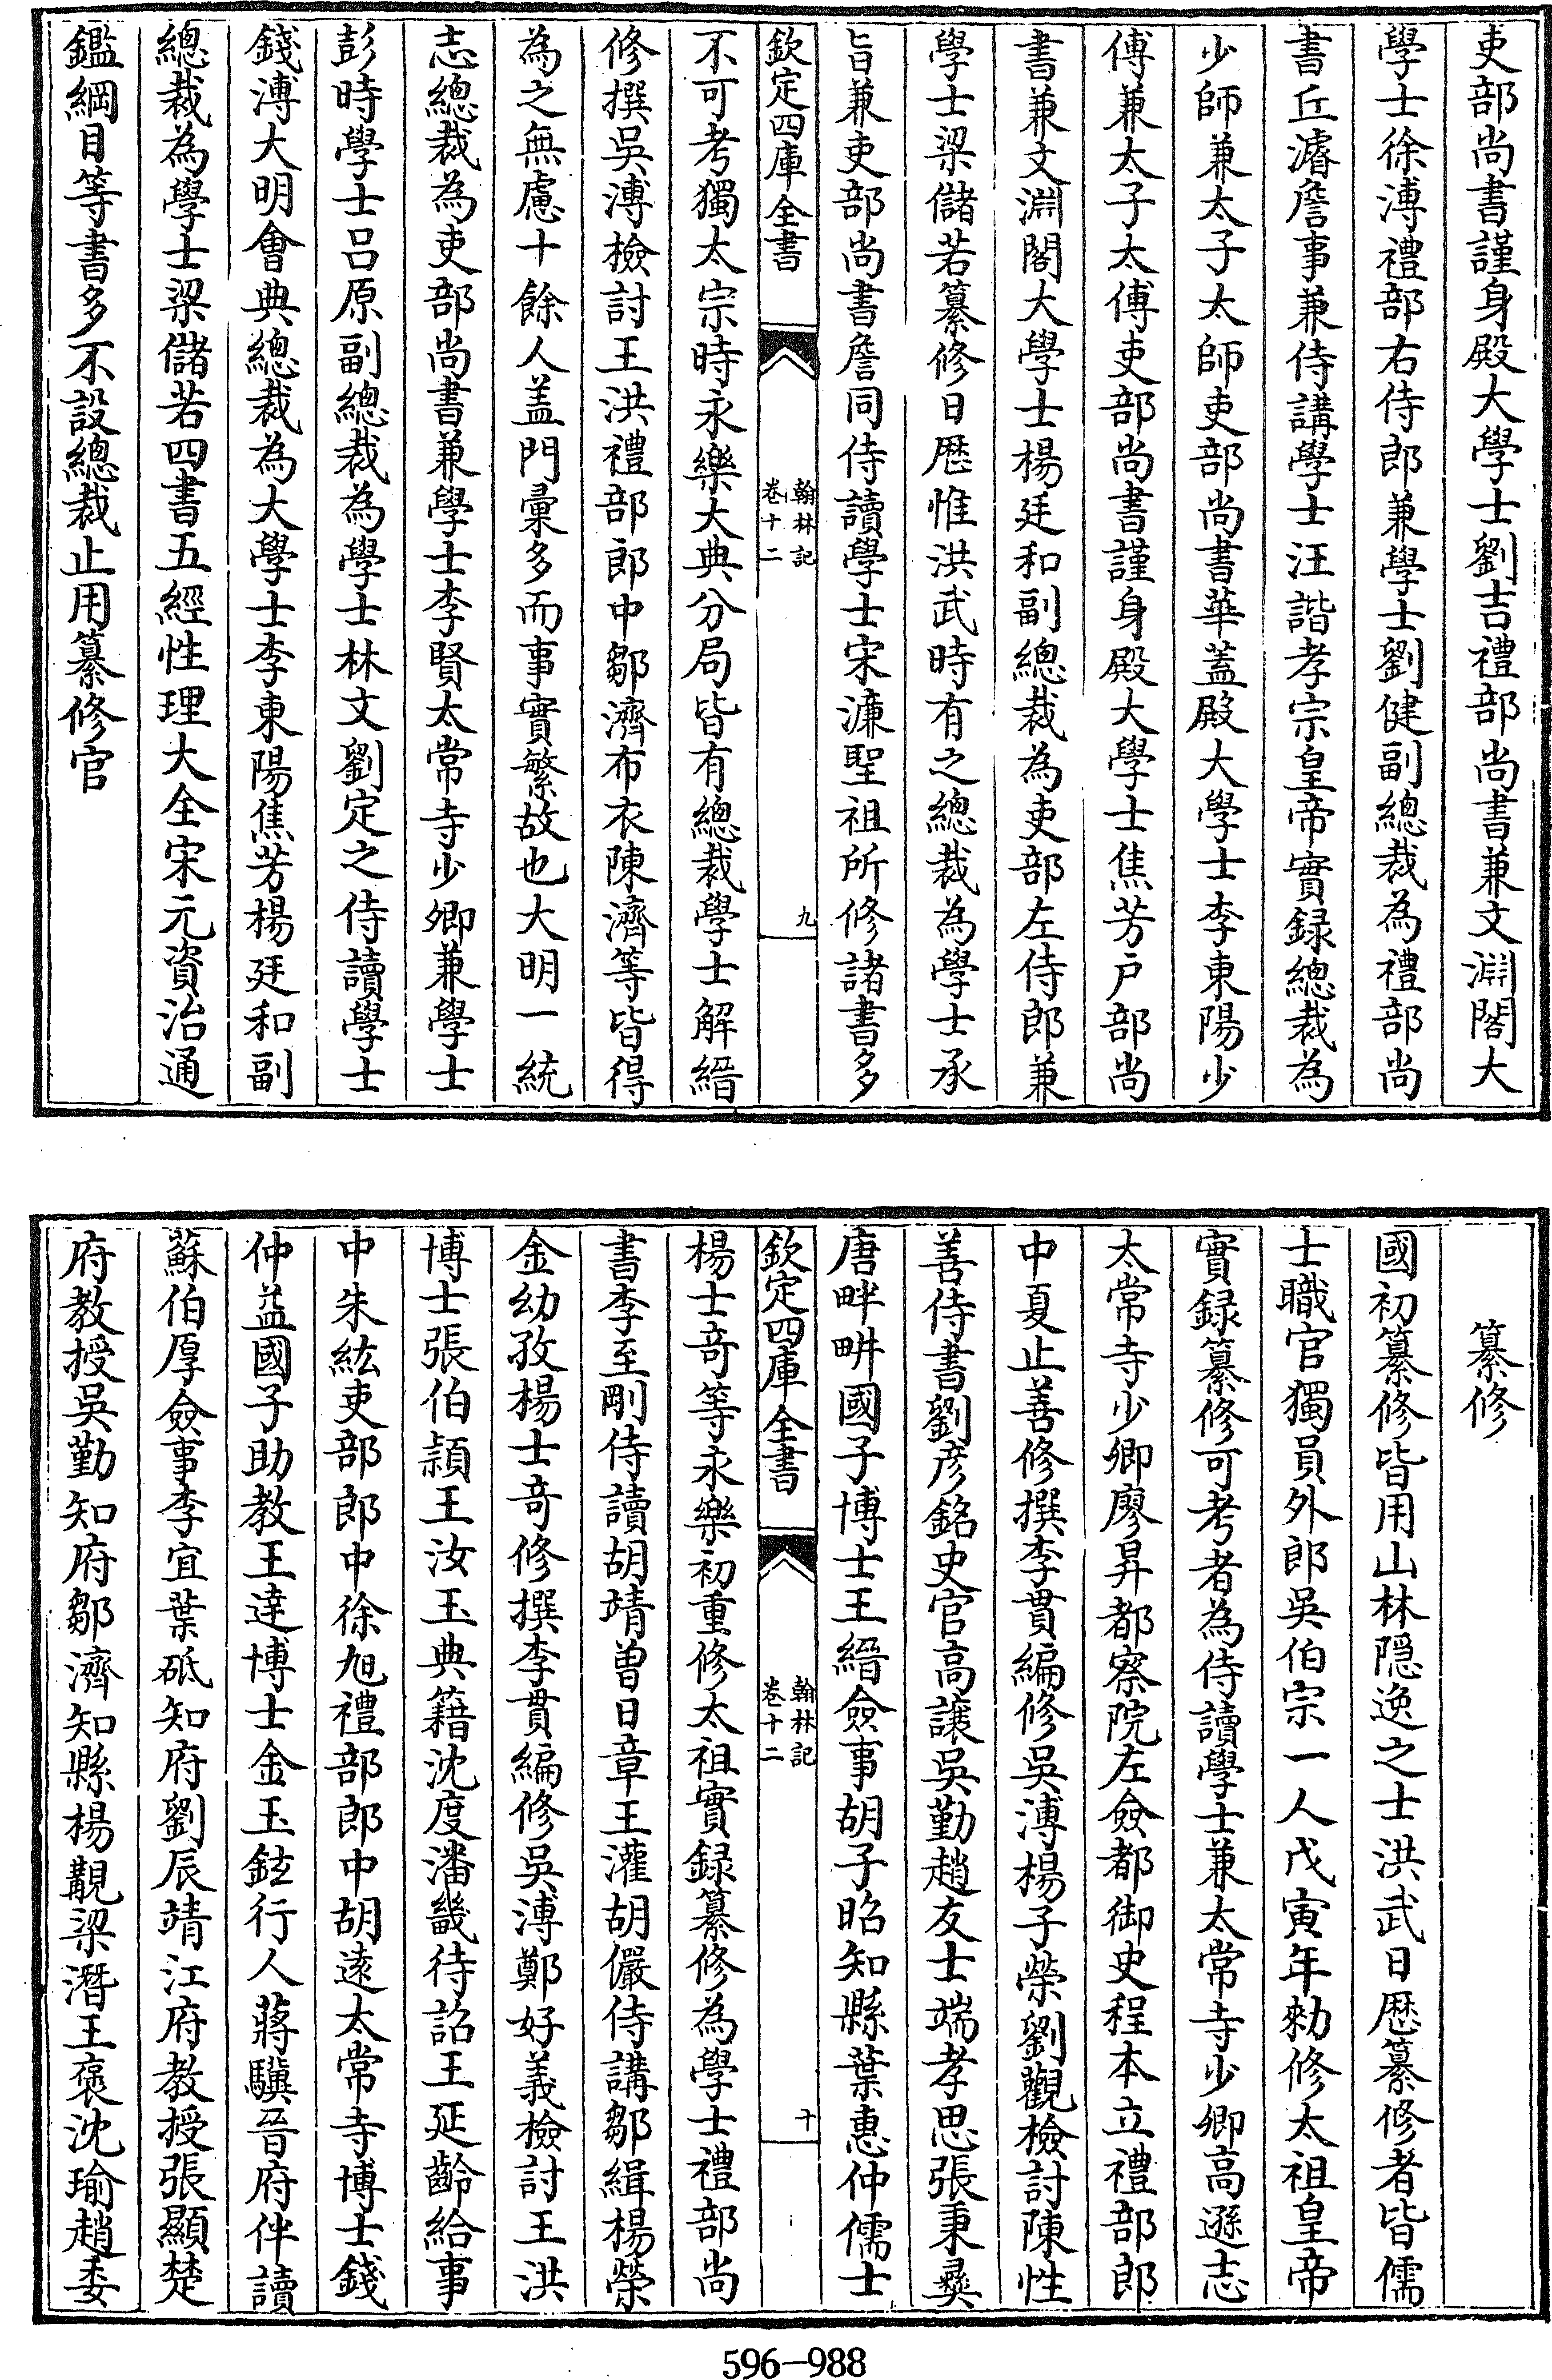 吏部尚書謹身殿大學士劉吉禮部尚書兼文淵閣大
學士徐溥禮部右侍郎兼學士劉健副總裁為禮部尚
書丘濬詹事兼侍講學士汪諧孝宗皇帝實録總裁為
少師兼太子太師吏部尚書華蓋殿大學士李東陽少
傅兼太子太傅吏部尚書謹身殿大學士焦芳户部尚
書兼文淵閣大學士楊廷和副總裁為吏部左侍郎兼
學士梁儲若纂修日歴惟洪武時有之總裁為學士承
旨兼吏部尚書詹同侍讀學士宋濂聖祖所修諸書多
欽定四庫全書
翰林記
卷十二
九
不可考獨太宗時永樂大典分局皆有總裁學士解縉
修撰吳溥檢討王洪禮部郎中鄒濟布衣陳濟等皆得
為之無慮十餘人盖門彙多而事實繁故也大明一統
志總裁為吏部尚書兼學士李賢太常寺少卿兼學士
彭時學士吕原副總裁為學士林文劉定之侍讀學士
錢溥大明會典總裁為大學士李東陽焦芳楊廷和副
總裁為學士梁儲若四書五經性理大全宋元資治通
鑑綱目等書多不設總裁止用纂修官
纂修
國初纂修皆用山林隠逸之士洪武日歴纂修者皆儒
士職官獨員外郎吳伯宗一人戊寅年勅修太祖皇帝
實録纂修可考者為侍讀學士兼太常寺少卿高遜志
太常寺少卿廖昇都察院左僉都御史程本立禮部郎
中夏止善修撰李貫編修吳溥楊子榮劉觀檢討陳性
善侍書劉彦銘史官高讓吳勤趙友士端孝思張秉彝
唐畔畊國子博士王縉僉事胡子昭知縣葉惠仲儒士
欽定四庫全書
翰林記
卷十二
十
楊士竒等永樂初重修太祖實録纂修為學士禮部尚
書李至剛侍讀胡靖曾日章王灌胡儼侍講鄒緝楊榮
金幼孜楊士竒修撰李貫編修吳溥鄭好義檢討王洪
博士張伯頴王汝玉典籍沈度潘畿待詔王延齡給事
中朱紘吏部郎中徐旭禮部郎中胡遠太常寺博士錢
仲益國子助教王逹博士金玉鉉行人蔣驥晉府伴讀
蘇伯厚僉事李宜葉砥知府劉辰靖江府教授張顯楚
府教授吳勤知府鄒濟知縣楊覯梁潛王褒沈瑜趙委
596-988